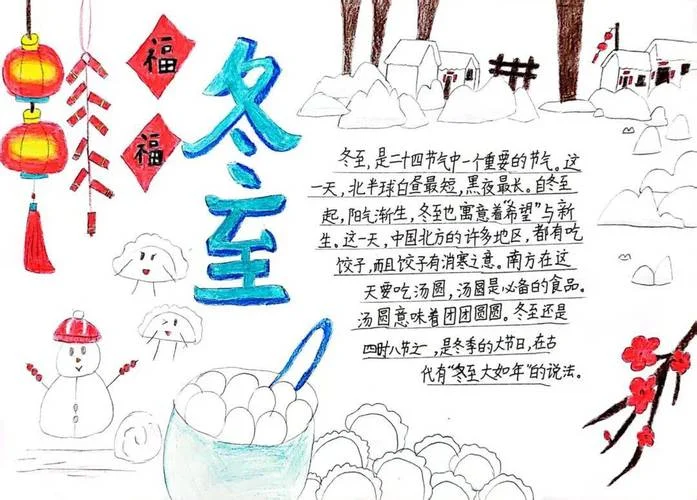 福
福
冬至
冬至,是二十四节气中一个重要的节气。这
一天,北半球白昼最短,黑夜最长。自冬至
起,阳气渐生,冬至也寓意着“希望”与新
生。这一天,中国北方的许多地区,都有吃
饺子,而且饺子有消寒之意。南方在这
天要吃汤圆,汤圆是必备的食品。
汤圆意味着团团圆圆。冬至还是
四时八节之一,是冬季的大节日,在古
代有“冬至大如年”的说法。